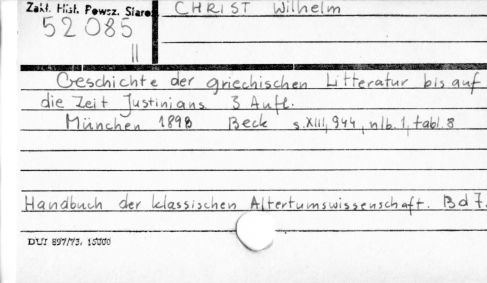 Zakł. Hist. Powsz. Staroż.
CHRIST Wilhelm
52 085
II
Geschichte der griechischen Litteratur bis auf
die Zeit Justinians. 3 Aufl.
München 1898 Beck s. XIII, 944, nlb. 1, tabl. 8
Handbuch der klassischen Altertumswissenschaft. Bd 7.
DUJ 897/73, 15000